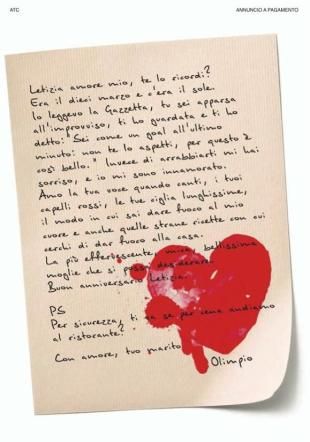 ATC
ANNUNCIO A PAGAMENTO
Letizia amore mio, te lo ricordi?
Era il dieci marzo e c'era il sole.
Io leggevo la Gazzetta, tu sei apparsa
all'improvviso, ti ho guardata e ti ho
detto: "Sei come un goal all'ultimo
minuto: non te lo aspetti, per questo è
così bello." Invece di arrabbiarti mi hai
sorriso, e io mi sono innamorato.
Amo la tua voce quando canti, i tuoi
capelli rossi, le tue ciglia lunghissime,
il modo in cui sai dare fuoco al mio
cuore e anche quelle strane ricette con cui
cerchi di dar fuoco alla casa.
La più effervescente, unica, bellissima
moglie che si possa desiderare.
Buon anniversario Letizia.
PS
Per sicurezza, ti va se per cena andiamo
al ristorante?
Con amore, tuo marito
Olimpio